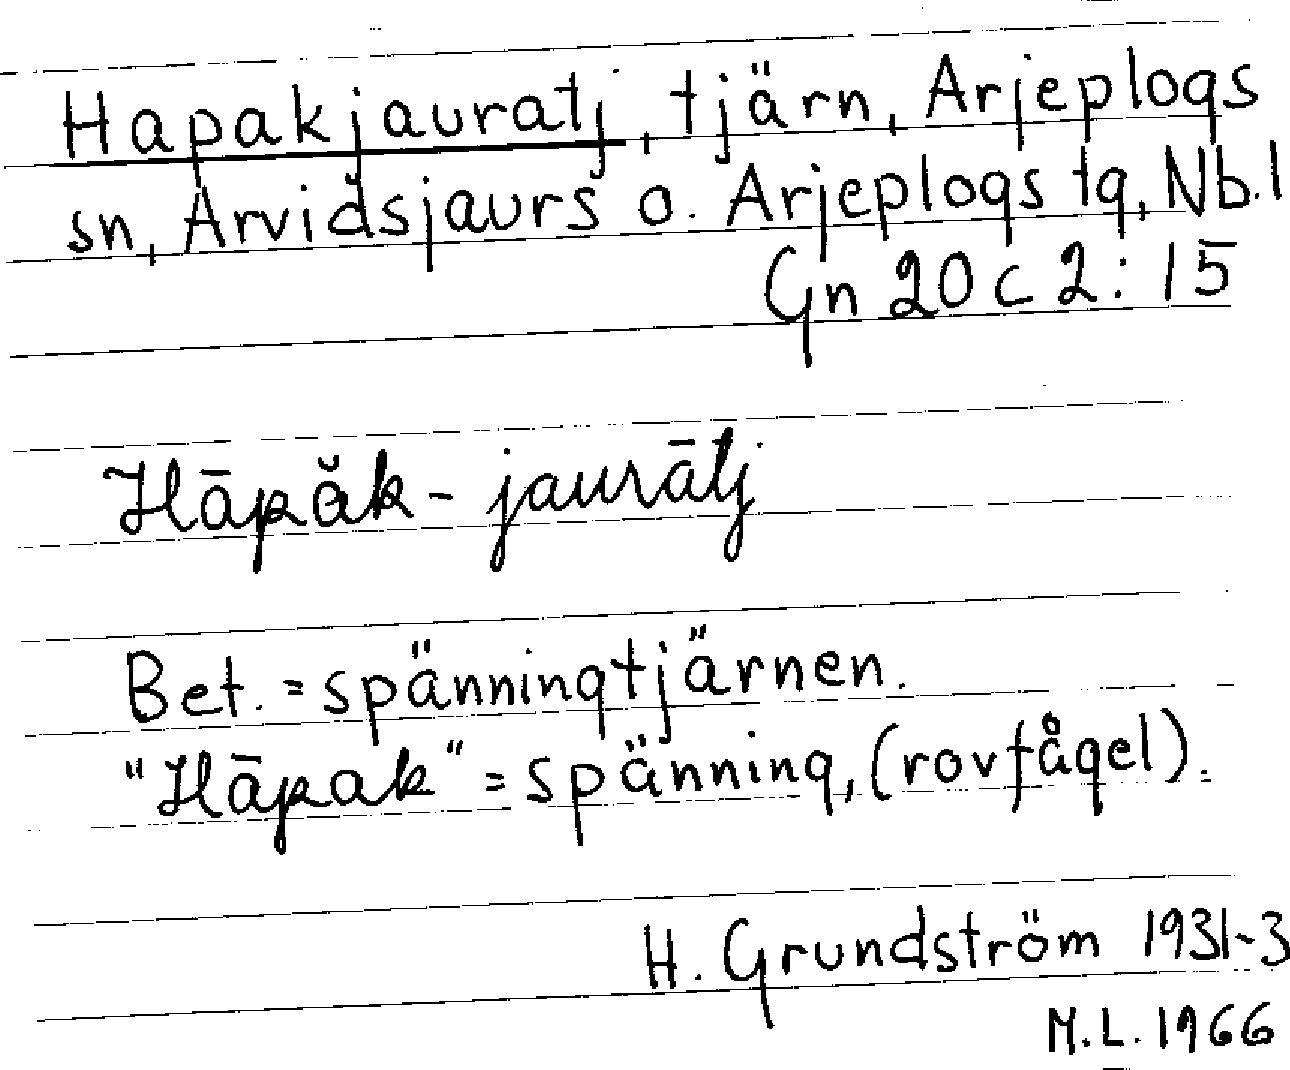 Hapakjauratj, tjärn, Arjeplogs
sn, Arvidsjaurs o. Arjeplogs tg, Nb. l
Gn 20 c 2: 15
Hāpăk - jaurātj
Bet. = spänningtjärnen.
"Hāpak" = spänning, (rovfågel).
H. Grundström 1931-3
M.L. 1966